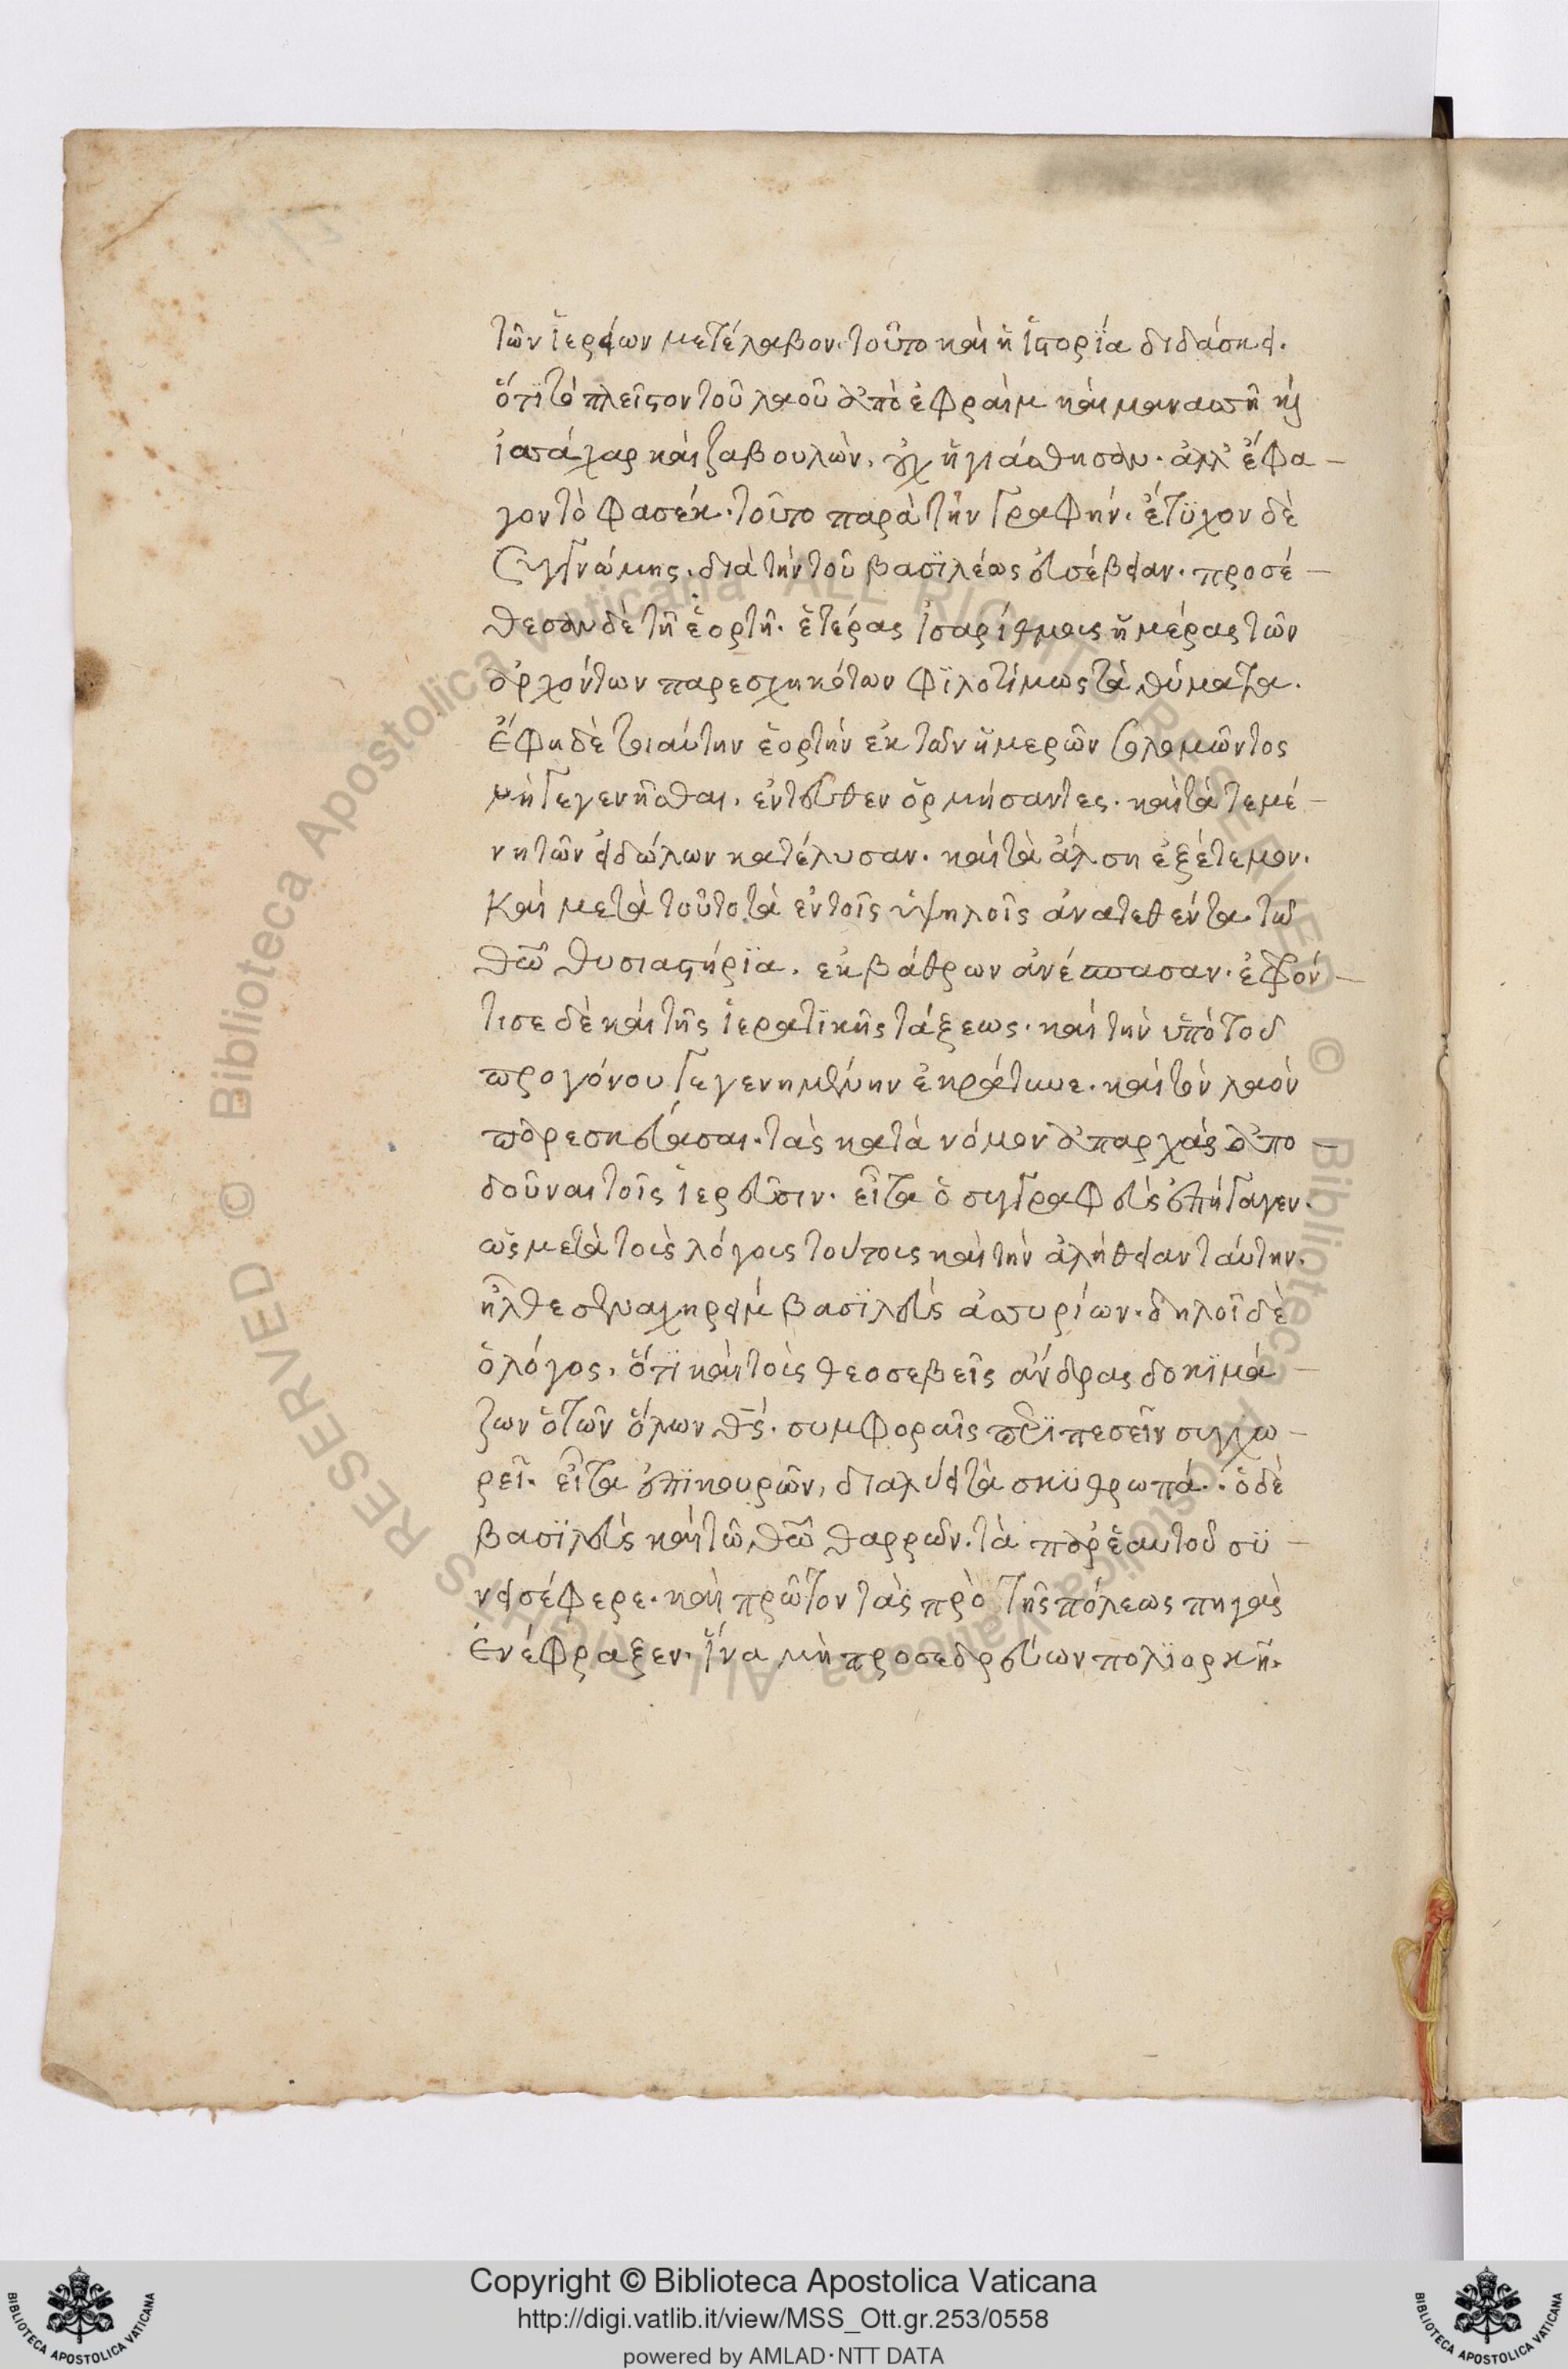 τῶν ἱερείων μετέλαβον. τοῦτο καὶ ἡ ἱστορία διδάσκει.
ὅτι τὸ πλεῖστον τοῦ λαοῦ ἀπὸ ἐφραὶμ καὶ μανασσῆ καὶ
ἰσσάχαρ καὶ ζαβουλὼν, οὐχ ἡγιάσθησαν. ἀλλ' ἔφα-
γον τὸ φασέκ. τοῦτο παρὰ τὴν γραφήν. ἔτυχον δὲ
συγγνώμης. διὰ τὴν τοῦ βασιλέως εὐσέβειαν. προσέ-
θεσαν δὲ τῆ ἑορτῆ. ἑτέρας ἰσαρίθμους ἡμέρας τῶν
ἀρχόντων παρεσχηκότων φιλοτίμως τὰ θύματα.
ἔφη δὲ τοιαύτην ἑορτὴν ἐκ τῶν ἡμερῶν σολομῶντος
μὴ γεγενῆσθαι. ἐντεῦθεν ὁρμήσαντες. καὶ τὰ τεμέ-
νη τῶν εἰδώλων κατέλυσαν. καὶ τὰ ἄλση ἐξέτεμον.
καὶ μετὰ τοῦτο τὰ ἐν τοῖς ὑψηλοῖς ἀνατεθέντα τῶ
θῶ θυσιαστήρια. ἐκ βάθρων ἀνέσπασαν. ἐφρόν-
τισε δὲ καὶ τῆς ἱερατικῆς τάξεως. καὶ τὴν ὑπὸ τοῦ
προγόνου γεγενημένην ἐκράτυνε. καὶ τὸν λαὸν
παρεσκεύασε. τὰς κατὰ νόμον ἀπαρχὰς ἀπο-
δοῦναι τοῖς ἱερεῦσιν. εἶτα ὁ συγγραφεὺς ἐπήγαγεν.
ὡς μετὰ τοὺς λόγους τούτους καὶ τὴν ἀλήθειαν ταύτην.
ἦλθε σενναχηρεὶμ βασιλεὺς ἀσσυρίων. δηλοῖ δὲ
ὁ λόγος, ὅτι καὶ τοὺς θεοσεβεῖς ἄνδρας δοκιμά-
ζων ὁ τῶν ὅλων θς. συμφοραῖς περιπεσεῖν συγχω-
ρεῖ. εἶτα ἐπικουρῶν, διαλύει τὰ σκυθρωπά. ὁ δὲ
βασιλεὺς καὶ τῶ θῶ θαρρῶν. τὰ παρ' ἑαυτοῦ συ-
νεισέφερε. καὶ πρῶτον τὰς πρὸ τῆς πόλεως πηγὰς
ἐνέφραξεν. ἵνα μὴ προσεδρεύων πολιορκῆ.
Copyright © Biblioteca Apostolica Vaticana
http://digi.vatlib.it/view/MSS_Ott.gr.253/0558
powered by AMLAD·NTT DATA
BIBLIOTECA APOSTOLICA VATICANA
BIBLIOTECA APOSTOLICA VATICANA
© Biblioteca Apostolica Vaticana ALL RIGHTS RESERVED
© Biblioteca Apostolica Vaticana ALL RIGHTS RESERVED